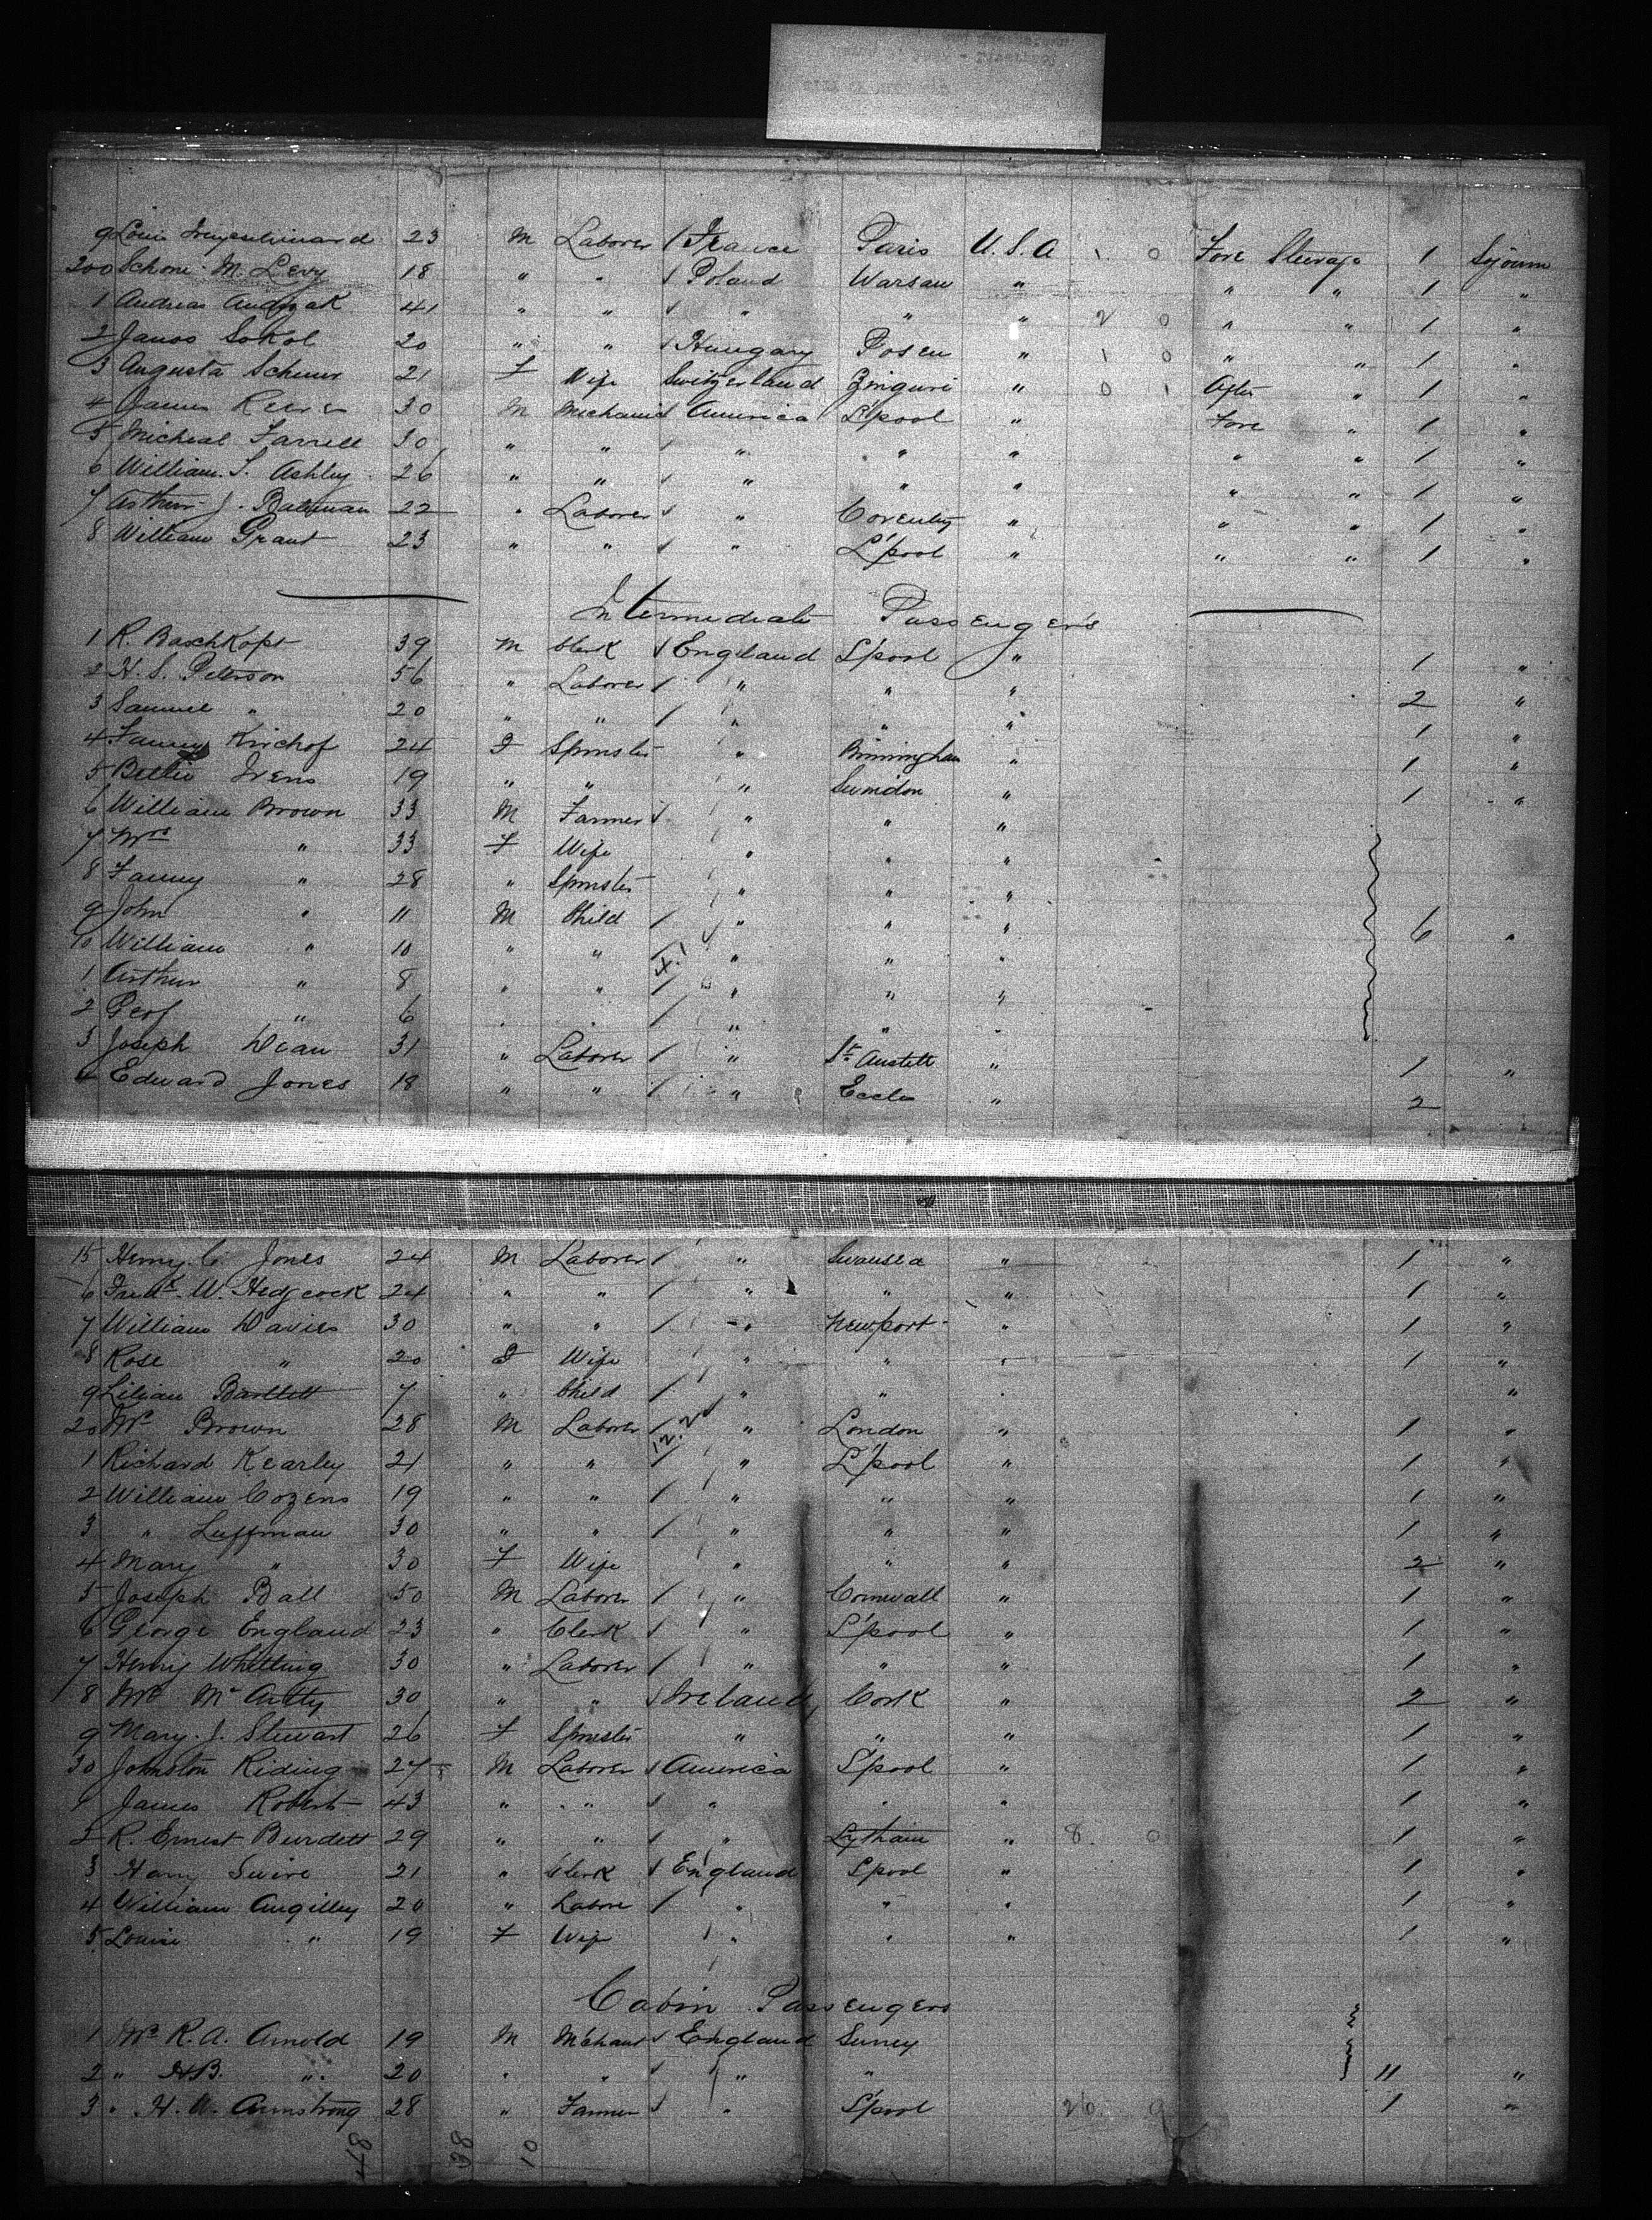 9 Louis 23 M Laborer / France Paris U.S.A 1 0 Fore Steerage 1 Sojourn
200 Schone M. Levy 18 " " / Poland Warsaw " " " 1 "
1 Andreas 41 " " / " " " 2 0 " " 1 "
2 Janos Sokol 20 " " / Hungary Posen " 1 0 " " 1 "
3 Augusta Schmur 21 F Wife Switzerland " 0 1 After " 1 "
4 James 30 M Mechanic / America L'pool " Fore " 1 "
5 Micheal Farrell 30 " " / " " " " " 1 "
6 William. S. Ashley 26 " " / " " " " " 1 "
7 Arthur J. Bateman 22 " Laborer / " Coventry " " " 1 "
8 William Grant 23 " " / " L'pool " " " 1 "
Intermediate Passengers
1 R. Baschkopf 39 M Clerk / England L'pool " 1 "
2 H. S. Peterson 56 " Laborer / " " " 2 "
3 Samuel " 20 " " / " " " 1 "
4 Fanny Kirchof 24 F Spinster " Birmingham " 1 "
5 Ivens 19 " " " Swindon " 1 "
6 William Brown 33 M Farmer / " " "
7 Mrs " 33 F Wife " " "
8 Fanny " 28 " Spinster " " "
9 John " 11 M Child / " " " 6 "
10 William " 10 " " / 4.1 " " "
1 Arthur " 8 " " / " " "
2 Geof " 6 " " / " " "
3 Joseph Dean 31 " Laborer / " St. Austell " 1 "
4 Edward Jones 18 " " / " Eccles " 2
15 Henry C. Jones 24 M Laborer / " Swansea " 1 "
6 Fredk. W. Hedgcock 24 " " / " " " 1 "
7 William Davies 30 " " / " Newport " 1 "
8 Rose " 20 F Wife " " " 1 "
9 Lilian Bartlett 7 " Child / " " " "
20 Wm Brown 28 M Laborer / 12.2 " London " 1 "
1 Richard Kearley 21 " " / " L'pool " 1 "
2 William Cozens 19 " " / " " " 1 "
3 " Luffman 30 " " / " " " 1 "
4 Mary " 30 F Wife " " " 2 "
5 Joseph Ball 50 M Laborer / " Cornwall " 1 "
6 George England 23 " Clerk / " L'pool " 1 "
7 Henry Whitting 30 " Laborer / " " " 1 "
8 30 " " / Ireland Cork " 2 "
9 Mary. J. Stewart 26 F Spinster " " " 1 "
30 Johnston Riding 27 M Laborer / America L'pool " 1 "
1 James Roberts 43 " " / " " " 1 "
2 R. Ernest Burdett 29 " " / " Lytham " 8. 0 1 "
3 Harry Swire 21 " Clerk / England L'pool " 1 "
4 William Angilley 20 " Labore / " " " 1 "
5 Louisi " 19 F Wife " " " 1 "
Cabin Passengers
1 Mr R. A. Arnold 19 M M'chant / England Surrey
2 " H.B. " 20 " " / " " 11 "
3 " H. W. Armstrong 28 " Farmer / " L'pool 26 9 1 "
48 38 10